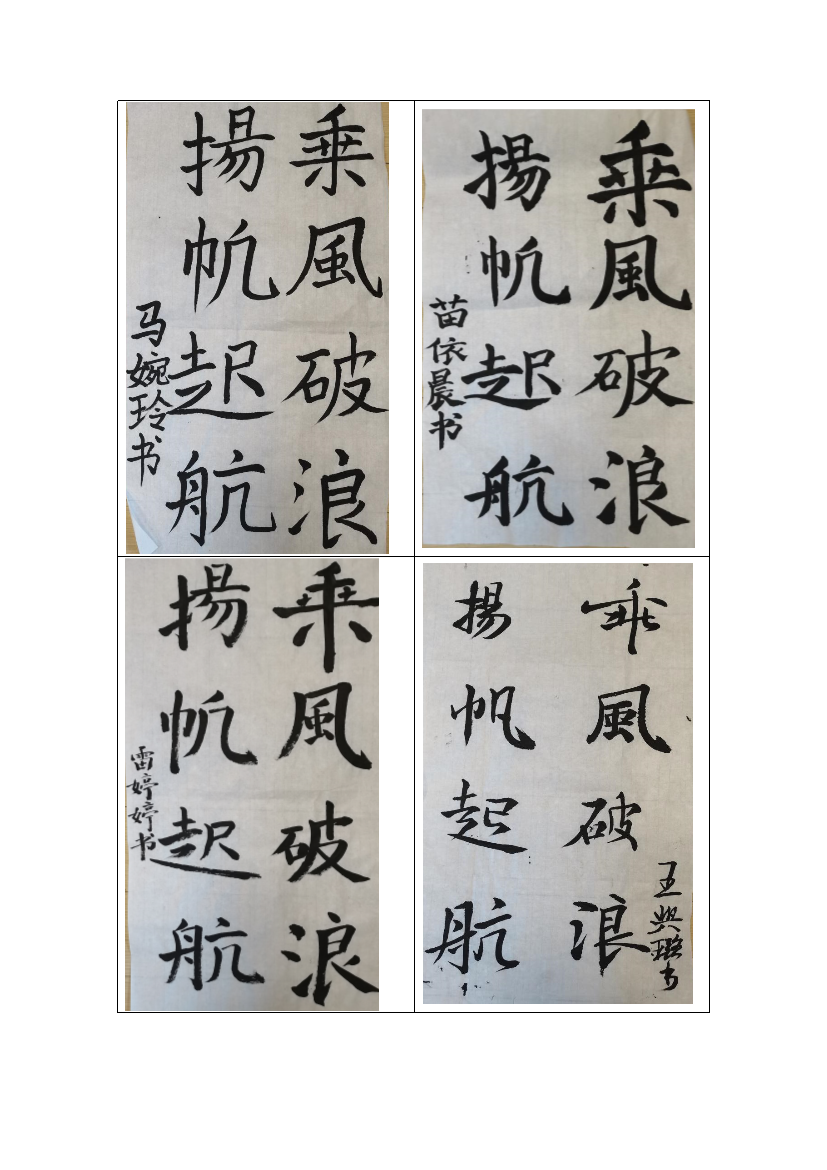 乘風破浪
揚帆起航
马婉玲书
乘風破浪
揚帆起航
苗依晨书
乘風破浪
揚帆起航
雷婷婷书
乘風破浪
揚帆起航